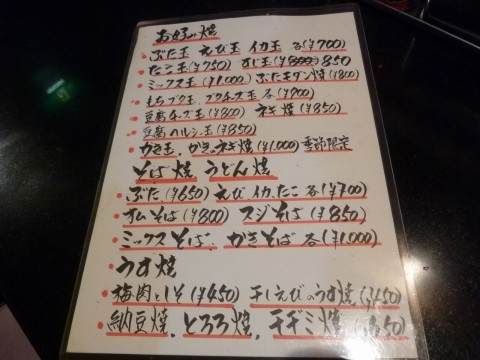 お好み焼
・ぶた玉 えび玉 イカ玉 各(¥700)
・たこ玉(¥750) すじ玉(¥800)850
・ミックス玉(¥1,000) ぶたモダン焼(¥800)
・もちブタ玉、ブタチーズ玉 各(¥900)
・豆腐チーズ玉(¥800) ネギ焼(¥850)
・豆腐ヘルシー玉(¥850)
・かき玉、かきのネギ焼(¥1,000) 季節限定
そば焼 うどん焼
・ぶた(¥650) えび、イカ、たこ 各(¥700)
・オムそば(¥800) スジそば(¥850)
・ミックスそば、かきそば 各(¥1,000)
・うす焼
・梅肉としそ(¥450) 干しえびのうす焼(¥450)
・納豆焼、とろろ焼、チヂミ焼